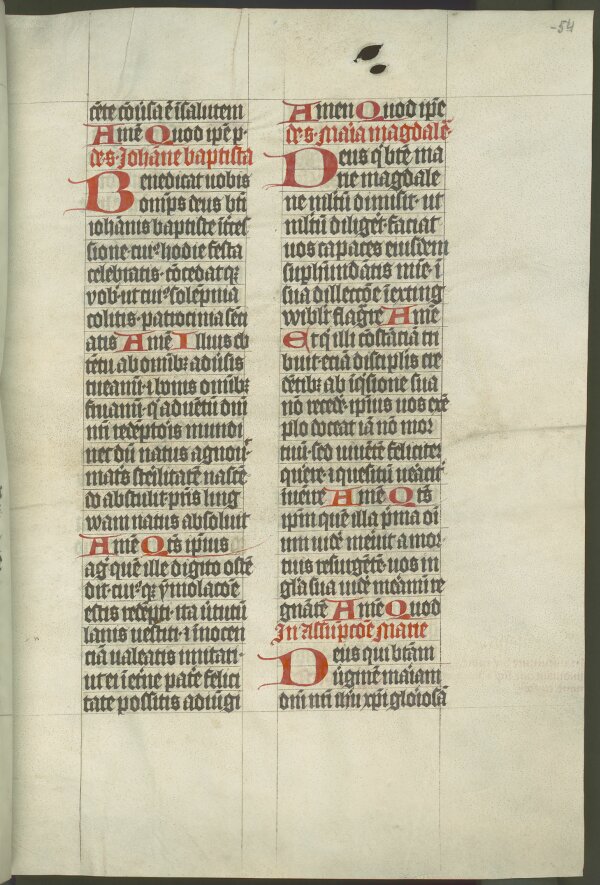 -54
cete cōūsa ē ī salutem
Amē Quod ip̄e p·
de·s·Johāne baptista
Benedicat uobis
omp̄s deus bt̄i
iohānis baptiste īt̄ces
sione cui⁹ hodie festa
celebratis· cōcedat qꝫ
vob̄· ut cui⁹ solēpnia
colitis· patrocinia sēci
atis Amē Illius ob
tētu ab omībꝫ aduīsis
tueamī· ⁊ bonis omībꝫ
fruamī· q̄ aduētū dn̄i
nr̄i redēptoīs mundi
nec dū natus agnouit
matīs sterilitatē nascē
do abstulit· pr̄is ling
wam natus absoluit
Amē Qt̄s ipīus
agn̄ que ille digito ostē
dit· cui⁹ qꝫ ymolacōe
estis redēpti· ita uirtutū
lanis uestiti· ⁊ inocen
ciā ualeatis imitari·
ut ei ī et̄ne pat̄e felici
tate possitis adiūgi
Amen Quod ip̄e
de·s·Maīa magdalē·
Deus q̄ bt̄e ma
rie magdale
ne m̄ltū dimisit· ut
m̄ltū diligēt· faciat
uos capaces eiusdem
suphīndātis mīe· ī
sua dillectōe īexting
wibl̄r flag̃re Amē
Et q̄ illi cōstāciā tri
buit· eciā discipl̄is cre
dētibꝫ ab īq̄sitione sua
nō recedē· ipīus uos exē
plo doceat iā nō mor
tuū· sed uiuētē feliciter
quēre· ⁊ quesitū ueracit̄
īuēire Amē Qt̄s
ip̄m quē illa p̄ma oī
um uidē meruit a mor
tuis resurgētē· uos in
gl̄a sua uidē meāmī re
gnātē Amē Quod
In Assūpcōe Marie
Deus qui bt̄am
ūginē maīam
dn̄i nr̄i ih̄u xp̄i gl̄oīosā